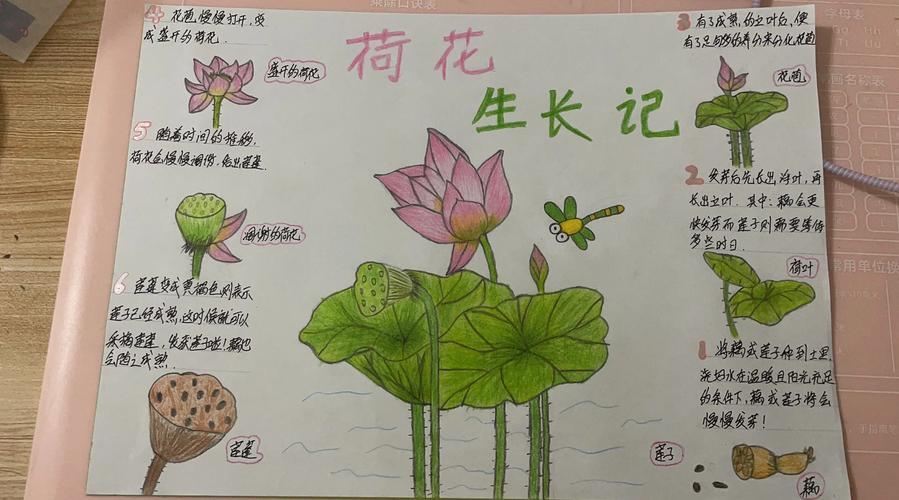 荷花
生长记
4 花苞慢慢打开,变
成盛开的荷花.
盛开的荷花
5 随着时间的推移,
荷花会慢慢凋谢,结出莲蓬.
凋谢的荷花
6 莲蓬变成黑褐色则表示
莲子已经成熟,这时候就可以
采摘莲蓬,收获莲子啦!藕也
会随之成熟.
莲蓬
3 有了成熟的立叶后,便
有了足够的养分来分化花苞
花苞
2 发芽后先长出浮叶,再
长出立叶.其中:藕会更
快发芽而莲子则需要等待
多些时日.
荷叶
1 将藕或莲子种到土里
浇好水在温暖且阳光充足
的条件下,藕或莲子将会
慢慢发芽!
莲子
藕
乘除口诀表
字母表
画名称表
常用单位换